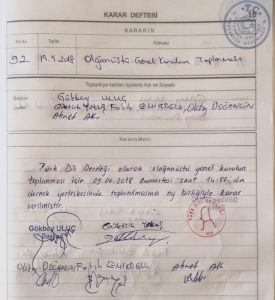 KARAR DEFTERİ
KARARIN
Sıra No Tarihi Konusu
92 19.5.2018 Olağanüstü Genel Kurulun Toplanması
Toplantıya katılan üyelerin Adı ve Soyadı
Başkan Gökbey ULUÇ
Üyeler Fatih EMİROĞLU, Oktay DOĞANGÜN
Ahmet AK
Kararın Metni
Türk Dili Derneği olarak olağanüstü genel kurulun
toplanması için 09.06.2018 cumartesi saat 14.00'da
dernek yerleşkesinde toplanılmasına oy birliğiyle karar
verilmiştir.
Gökbey ULUÇ
Başkan
Fatih EMİROĞLU Ahmet AK